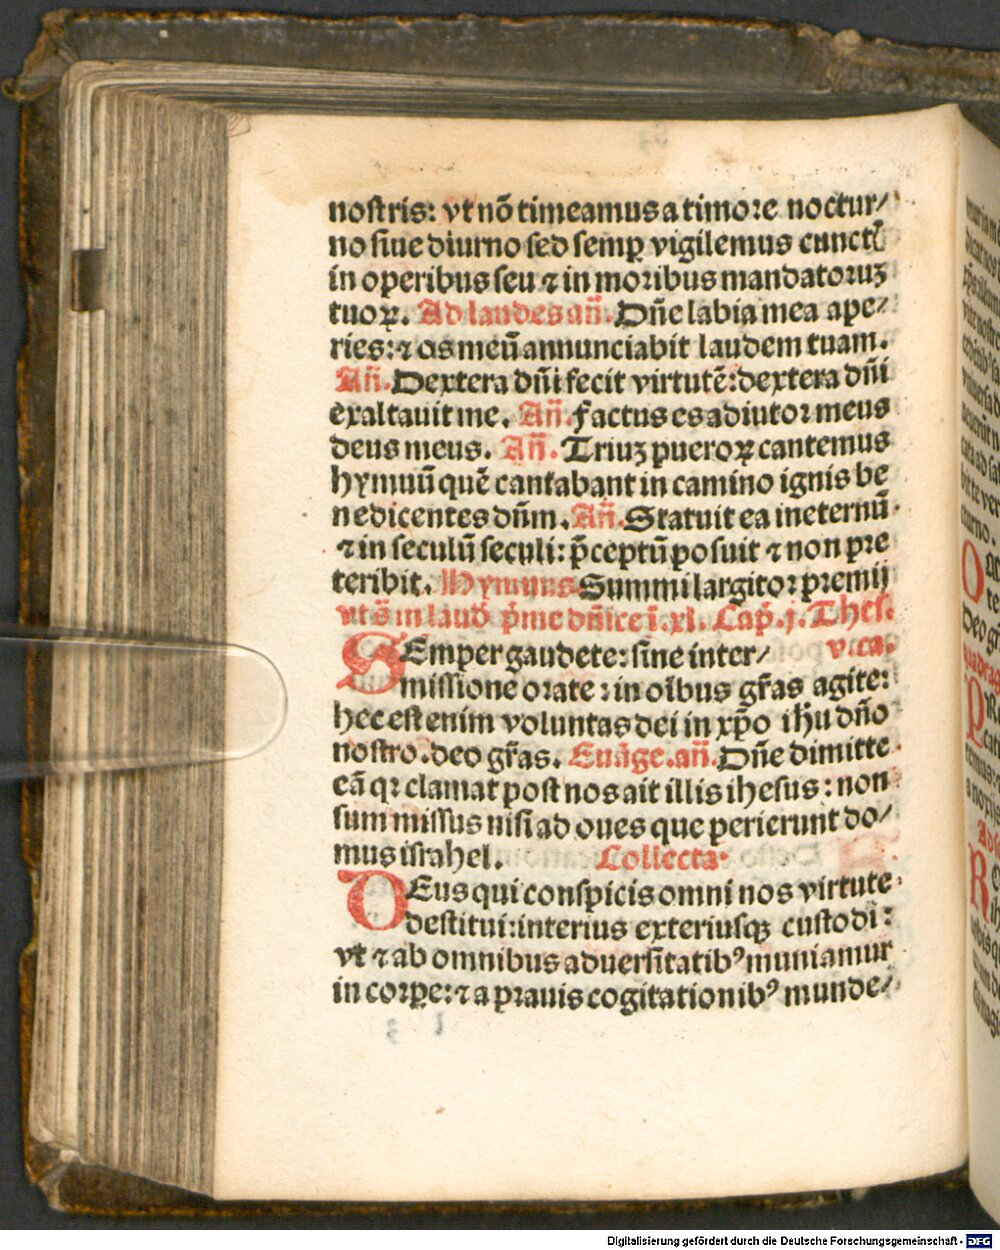 nostris: vt nō timeamus a timore noctur/
no siue diurno sed semꝑ vigilemus cunctꝭ
in operibus seu ⁊ in moribus mandatoruꝫ
tuoꝝ. Ad laudes an̄. Dn̄e labia mea ape/
ries: ⁊ os meū annunciabit laudem tuam.
An̄. Dextera dn̄i fecit virtutē: dextera dn̄i
exaltauit me. An̄. Factus es adiutor meus
deus meus. An̄. Triuꝫ pueroꝝ cantemus
hymnū quē cantabant in camino ignis be
nedicentes dn̄m. An̄. Statuit ea ineternū
⁊ in seculū seculi: p̄ceptū posuit ⁊ non pre
teribit. Hymnus. Summi largitor premij
vt s̄ in laud̄ p̄me dn̄ice ī .xl. Cap̄. j. Thes.
SEmper gaudete: sine inter/ v. ca.
missione orate: in oībus gr̄as agite:
hec est enim voluntas dei in xp̄o ih̄u dn̄o
nostro. deo gr̄as. Euāge. an̄. Dn̄e dimitte
eā qꝛ clamat post nos ait illis ihesus: non
sum missus nisi ad oues que perierunt do/
mus israhel. Collecta.
DEus qui conspicis omni nos virtute
destitui: interius exteriusqꝫ custodi:
vt ⁊ ab omnibus aduersitatibꝰ muniamur
in corꝑe: ⁊ a prauis cogitationibꝰ munde/
Digitalisierung gefördert durch die Deutsche Forschungsgemeinschaft - DFG